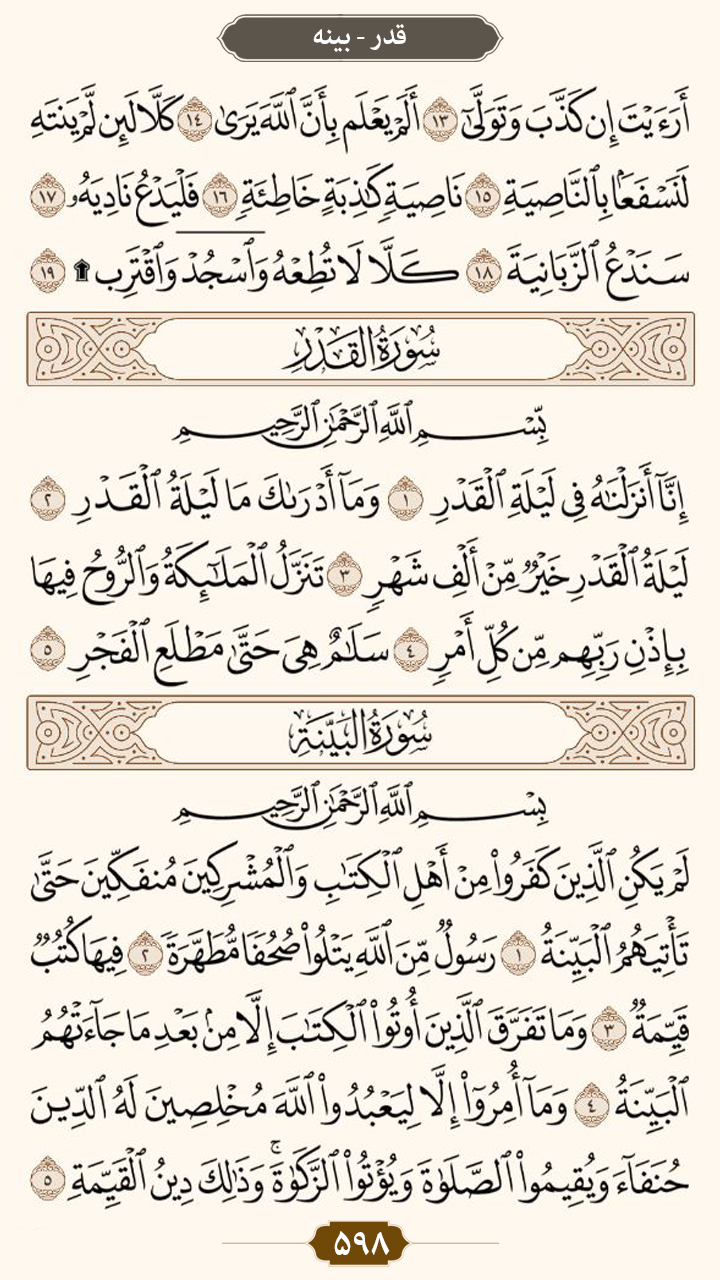 قدر - بینه
أَرَءَيْتَ إِن كَذَّبَ وَتَوَلَّىٰٓ ١٣ أَلَمْ يَعْلَم بِأَنَّ ٱللَّهَ يَرَىٰ ١٤ كَلَّا لَئِن لَّمْ يَنتَهِ
لَنَسْفَعَۢا بِٱلنَّاصِيَةِ ١٥ نَاصِيَةٖ كَٰذِبَةٍ خَاطِئَةٖ ١٦ فَلْيَدْعُ نَادِيَهُۥ ١٧
سَنَدْعُ ٱلزَّبَانِيَةَ ١٨ كَلَّا لَا تُطِعْهُ وَٱسْجُدْ وَٱقْتَرِب ۩ ١٩
سُورَةُ القَدْرِ
بِّسْمِ ٱللَّهِ ٱلرَّحْمَٰنِ ٱلرَّحِيمِ
إِنَّآ أَنزَلْنَٰهُ فِي لَيْلَةِ ٱلْقَدْرِ ١ وَمَآ أَدْرَىٰكَ مَا لَيْلَةُ ٱلْقَدْرِ ٢
لَيْلَةُ ٱلْقَدْرِ خَيْرٞ مِّنْ أَلْفِ شَهْرٖ ٣ تَنَزَّلُ ٱلْمَلَٰٓئِكَةُ وَٱلرُّوحُ فِيهَا
بِإِذْنِ رَبِّهِم مِّن كُلِّ أَمْرٖ ٤ سَلَٰمٌ هِيَ حَتَّىٰ مَطْلَعِ ٱلْفَجْرِ ٥
سُورَةُ البَيِّنَةِ
بِسْمِ ٱللَّهِ ٱلرَّحْمَٰنِ ٱلرَّحِيمِ
لَمْ يَكُنِ ٱلَّذِينَ كَفَرُوا۟ مِنْ أَهْلِ ٱلْكِتَٰبِ وَٱلْمُشْرِكِينَ مُنفَكِّينَ حَتَّىٰ
تَأْتِيَهُمُ ٱلْبَيِّنَةُ ١ رَسُولٞ مِّنَ ٱللَّهِ يَتْلُوا۟ صُحُفٗا مُّطَهَّرَةٗ ٢ فِيهَا كُتُبٞ
قَيِّمَةٞ ٣ وَمَا تَفَرَّقَ ٱلَّذِينَ أُوتُوا۟ ٱلْكِتَٰبَ إِلَّا مِنۢ بَعْدِ مَا جَآءَتْهُمُ
ٱلْبَيِّنَةُ ٤ وَمَآ أُمِرُوٓا۟ إِلَّا لِيَعْبُدُوا۟ ٱللَّهَ مُخْلِصِينَ لَهُ ٱلدِّينَ
حُنَفَآءَ وَيُقِيمُوا۟ ٱلصَّلَوٰةَ وَيُؤْتُوا۟ ٱلزَّكَوٰةَۚ وَذَٰلِكَ دِينُ ٱلْقَيِّمَةِ ٥
۵۹۸